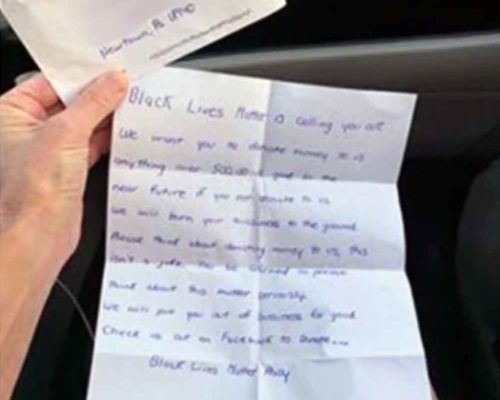 Newtown, PA 18940
Black Lives Matter is calling you out
We want you to donate money to us
anything over 500.00 is good in the
near future if you not donate to us
We will burn your business to the ground
Please think about donating money to us, this
isn't a joke. You be warned
think about this matter
We will put you out of business for good
Check us out on Facebook to Donate...
Black Lives Matter